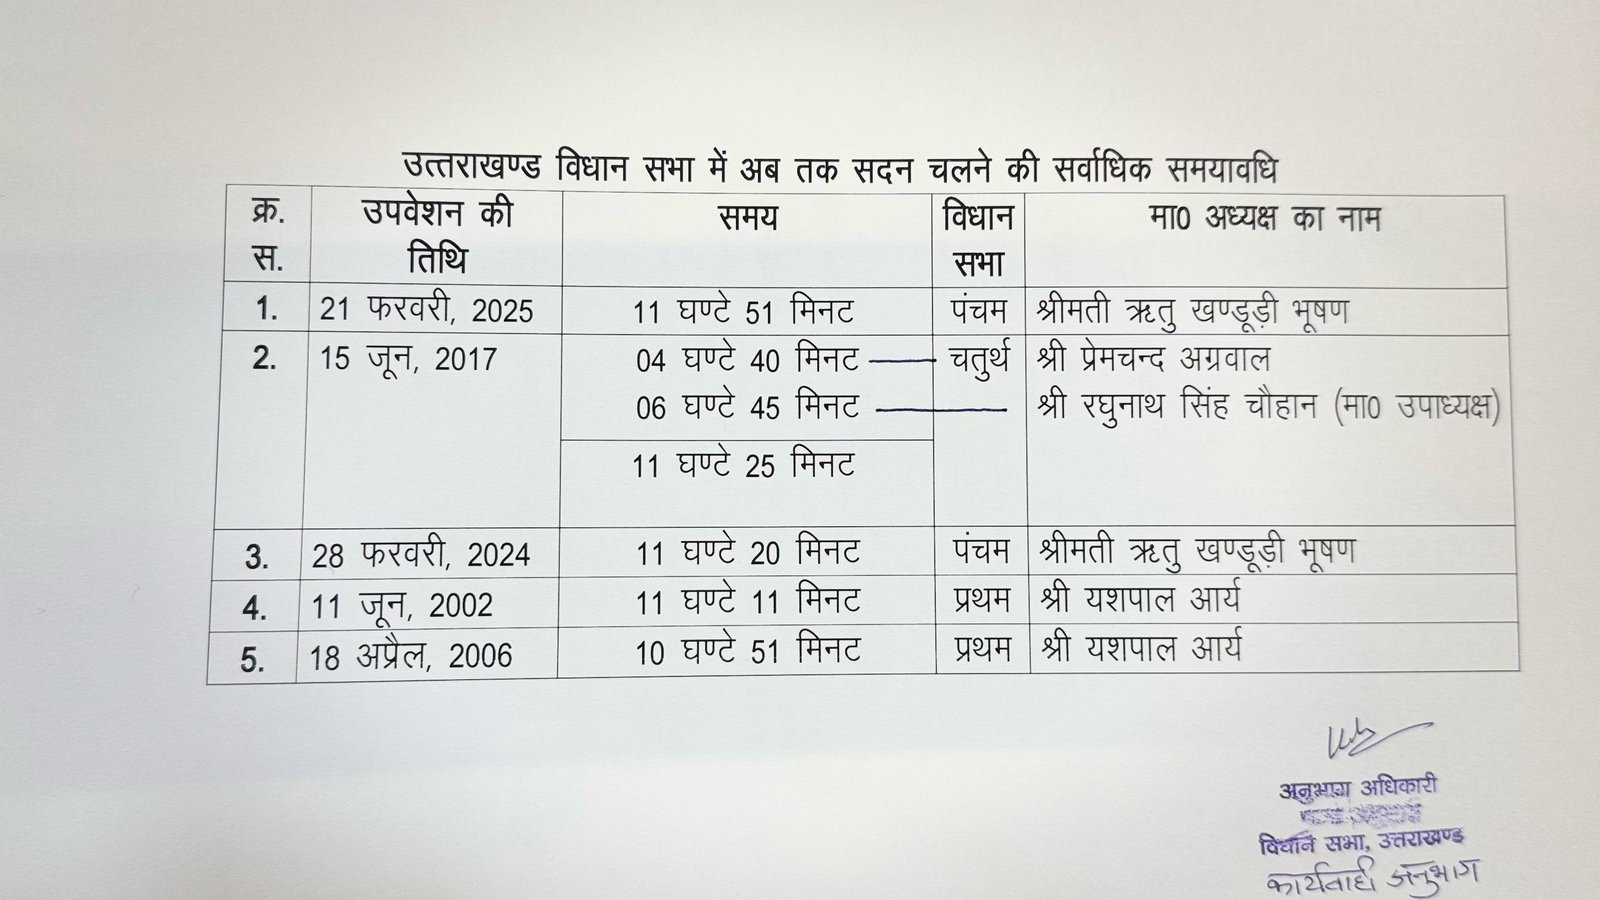 उत्तराखण्ड विधान सभा में अब तक सदन चलने की सर्वाधिक समयावधि
क्र. स. उपवेशन की तिथि समय विधान सभा मा0 अध्यक्ष का नाम
1. 21 फरवरी, 2025 11 घण्टे 51 मिनट पंचम श्रीमती ऋतु खण्डूड़ी भूषण
2. 15 जून, 2017 04 घण्टे 40 मिनट चतुर्थ श्री प्रेमचन्द अग्रवाल
06 घण्टे 45 मिनट श्री रघुनाथ सिंह चौहान (मा0 उपाध्यक्ष)
11 घण्टे 25 मिनट
3. 28 फरवरी, 2024 11 घण्टे 20 मिनट पंचम श्रीमती ऋतु खण्डूड़ी भूषण
4. 11 जून, 2002 11 घण्टे 11 मिनट प्रथम श्री यशपाल आर्य
5. 18 अप्रैल, 2006 10 घण्टे 51 मिनट प्रथम श्री यशपाल आर्य
अनुभाग अधिकारी
विधान सभा, उत्तराखण्ड
कार्यवाही अनुभाग